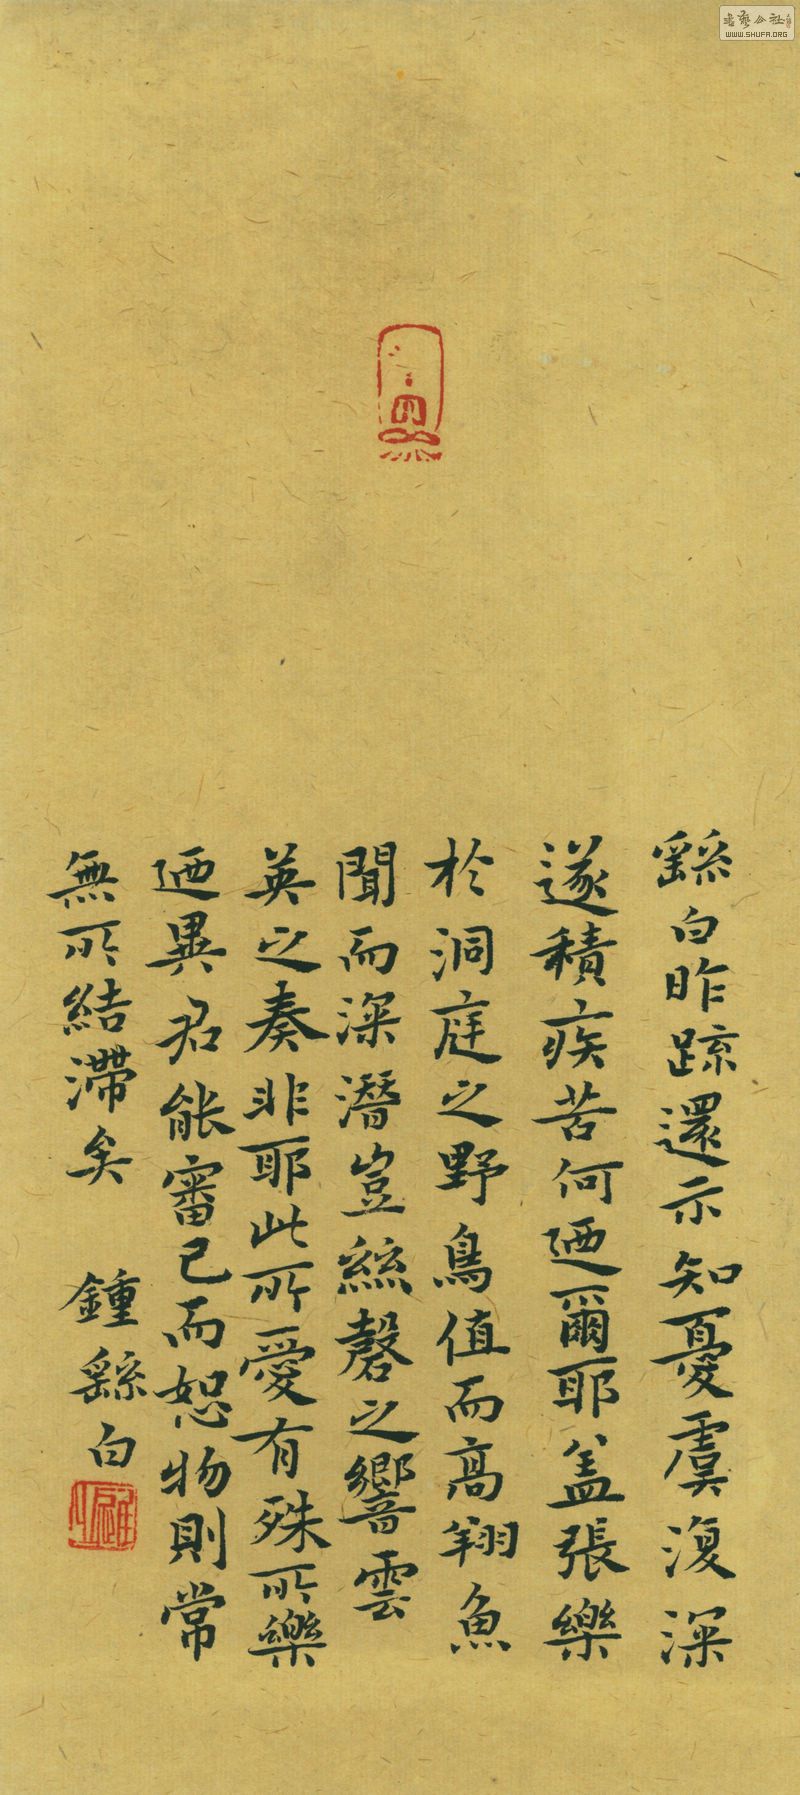 繇白昨疏還示知憂虞復深
遂積疾苦何迺爾耶盖張樂
於洞庭之野鳥值而高翔魚
聞而深潛豈絲磬之響雲
英之奏非耶此所愛有殊所樂
迺異君能審己而恕物則常
無所結滯矣 鍾繇白
WWW.SHUFA.ORG